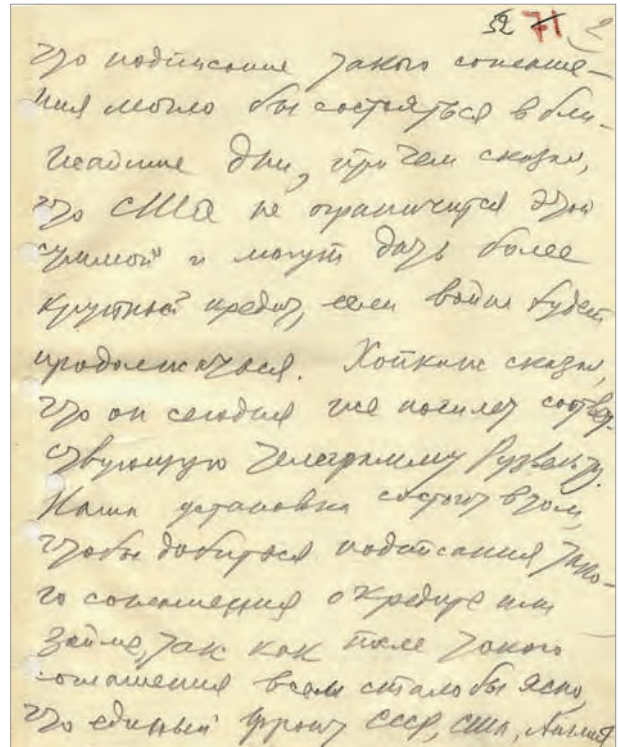 52 71 2
что подписание такого соглаше-
ния могло бы состояться в бли-
жайшие дни, причем сказал,
что США не ограничится этой
суммой и могут дать более
крупный кредит, если война будет
продолжаться. Хопкинс сказал,
что он сегодня же пошлет соответ-
ствующую телеграмму Рузвельту.
Наша установка состоит в том,
чтобы добиться подписания тако-
го соглашения о кредите или
займе, так как после такого
соглашения всем стало бы ясно,
что единый фронт СССР, США, Англия